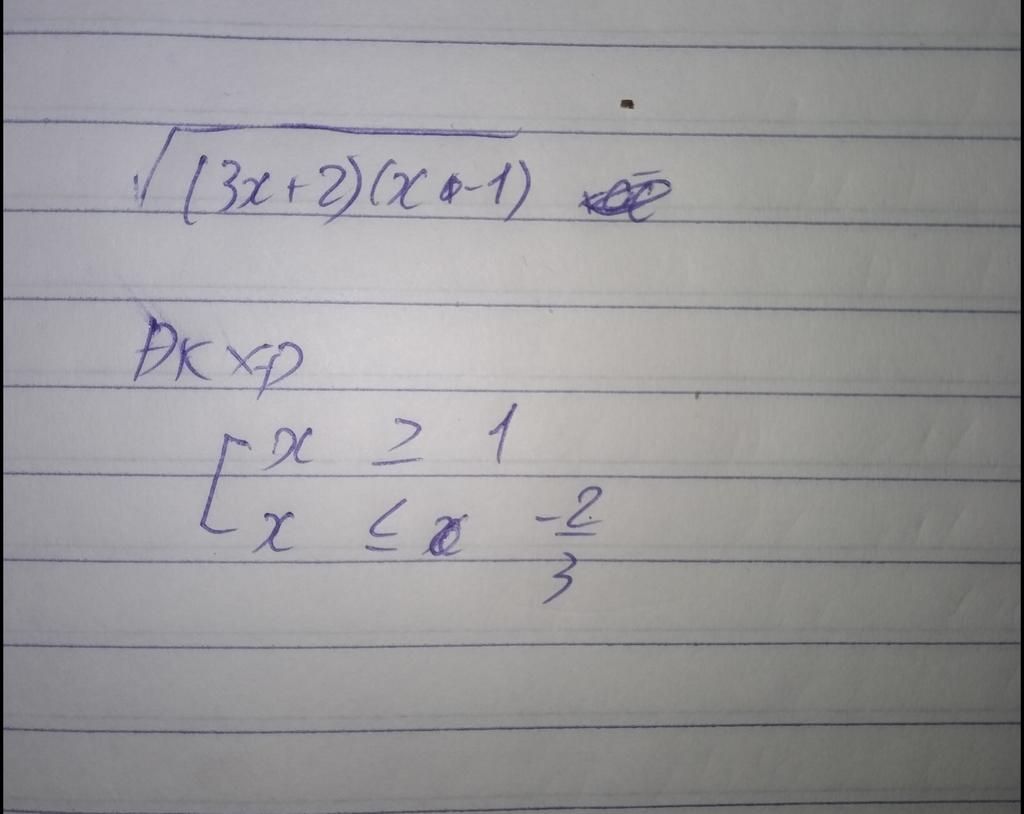 √(3x+2)(x-1)
ĐKXĐ
[ x ≥ 1
x ≤ -2/3